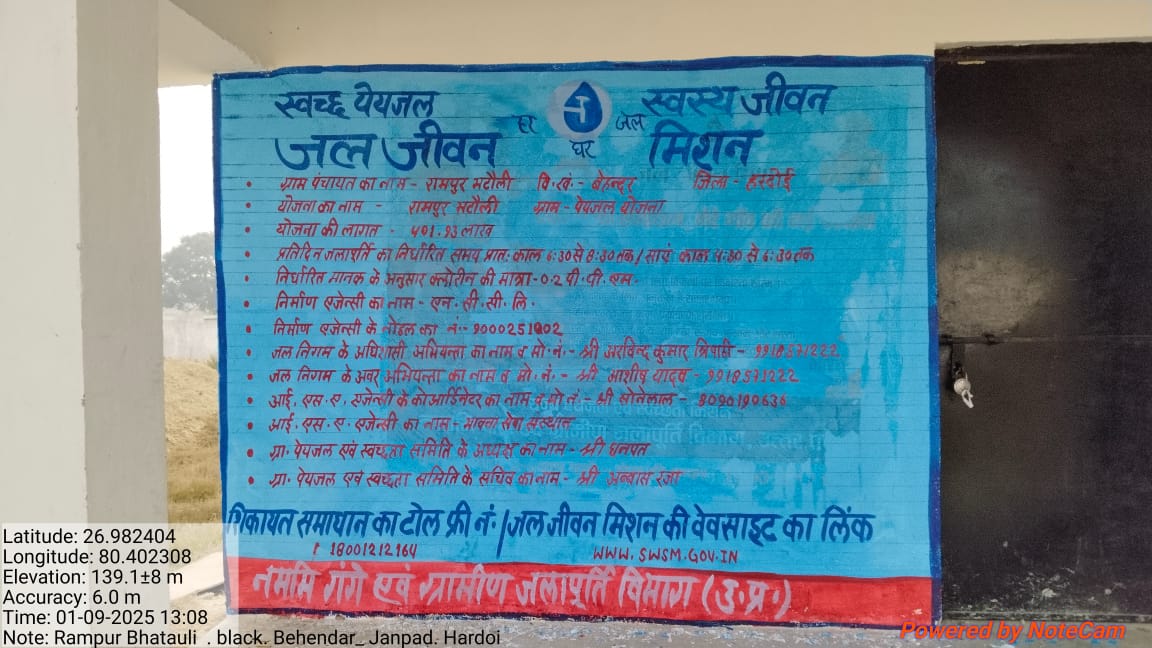 स्वच्छ पेयजल स्वस्थ्य जीवन
हर घर जल
जल जीवन मिशन
• ग्राम पंचायत का नाम - रामपुर भटौली वि.खं.- बेहन्दर जिला - हरदोई
• योजना का नाम - रामपुर भटौली ग्राम - पेयजल योजना
• योजना की लागत - 501.93 लाख
• प्रतिदिन जलापूर्ति का निर्धारित समय प्रातः काल 6:30 से 8:30 तक / सायं काल 4:30 से 6:30 तक
• निर्धारित मानक के अनुसार क्लोरीन की मात्रा - 0.2 पी.पी.एम.
• निर्माण एजेन्सी का नाम - एन.सी.सी.लि.
• निर्माण एजेन्सी के नोडल का नं.- 9000251002
• जल निगम के अधिशासी अभियन्ता का नाम व मो.नं.- श्री अरविन्द कुमार त्रिपाठी - 9918571222
• जल निगम के अवर अभियन्ता का नाम व मो.नं.- श्री आशीष यादव - 9918571222
• आई.एस.ए. एजेन्सी के कोआर्डिनेटर का नाम व मो.नं.- श्री सोनेलाल - 8090190636
• आई.एस.ए. एजेन्सी का नाम - भावना सेवा संस्थान
• ग्रा. पेयजल एवं स्वच्छता समिति के अध्यक्ष का नाम - श्री धनपत
• ग्रा. पेयजल एवं स्वच्छता समिति के सचिव का नाम - श्री अब्बास रजा
शिकायत समाधान का टोल फ्री नं. / जल जीवन मिशन की वेवसाइट का लिंक
18001212164 WWW.SWSM.GOV.IN
नमामि गंगे एवं ग्रामीण जलापूर्ति विभाग (उ.प्र.)
Latitude: 26.982404
Longitude: 80.402308
Elevation: 139.1±8 m
Accuracy: 6.0 m
Time: 01-09-2025 13:08
Note: Rampur Bhatauli . black. Behendar_ Janpad. Hardoi
Powered by NoteCam